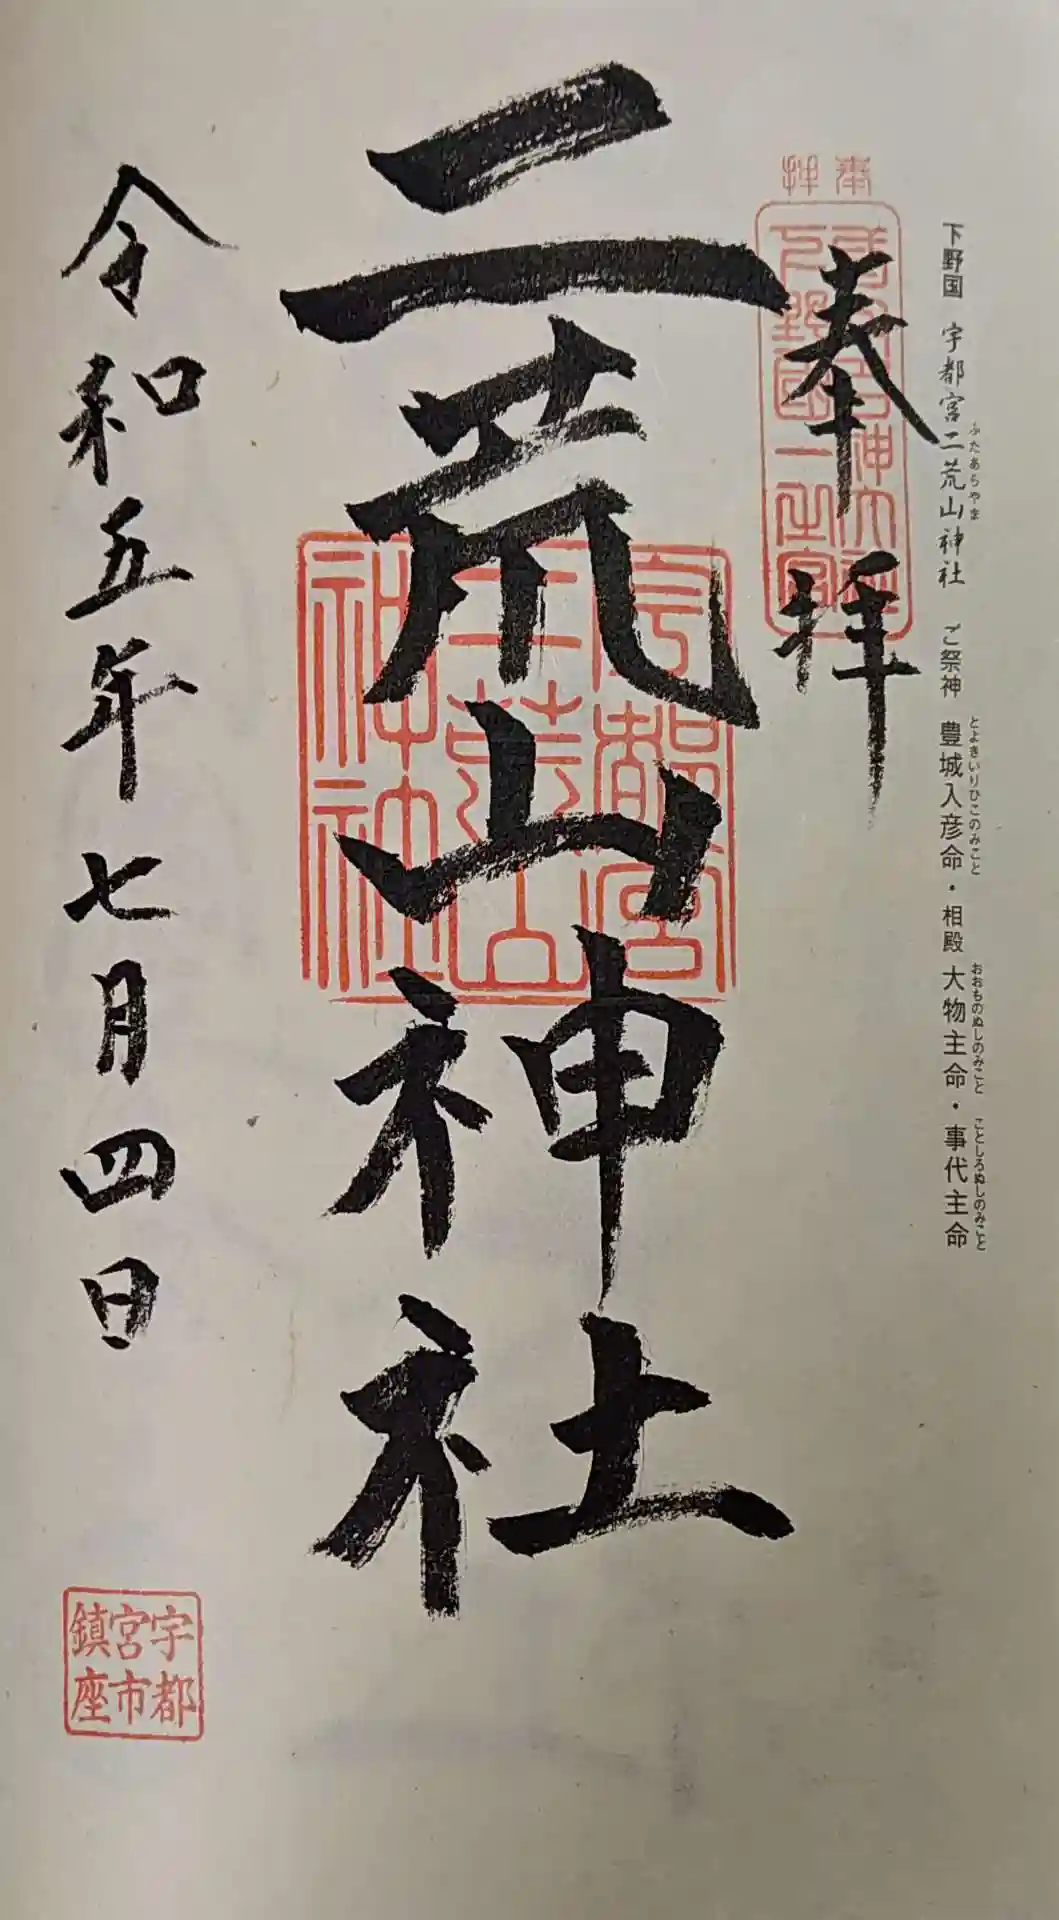 下野国 宇都宮二荒山神社 ご祭神 豊城入彦命・相殿 大物主命・事代主命
ふたあらやま
とよきいりひこのみこと
おおものぬしのみこと
ことしろぬしのみこと
奉拝
二荒山神社
宇都宮
二荒山
神社
令和五年七月四日
宇都
宮市
鎮座